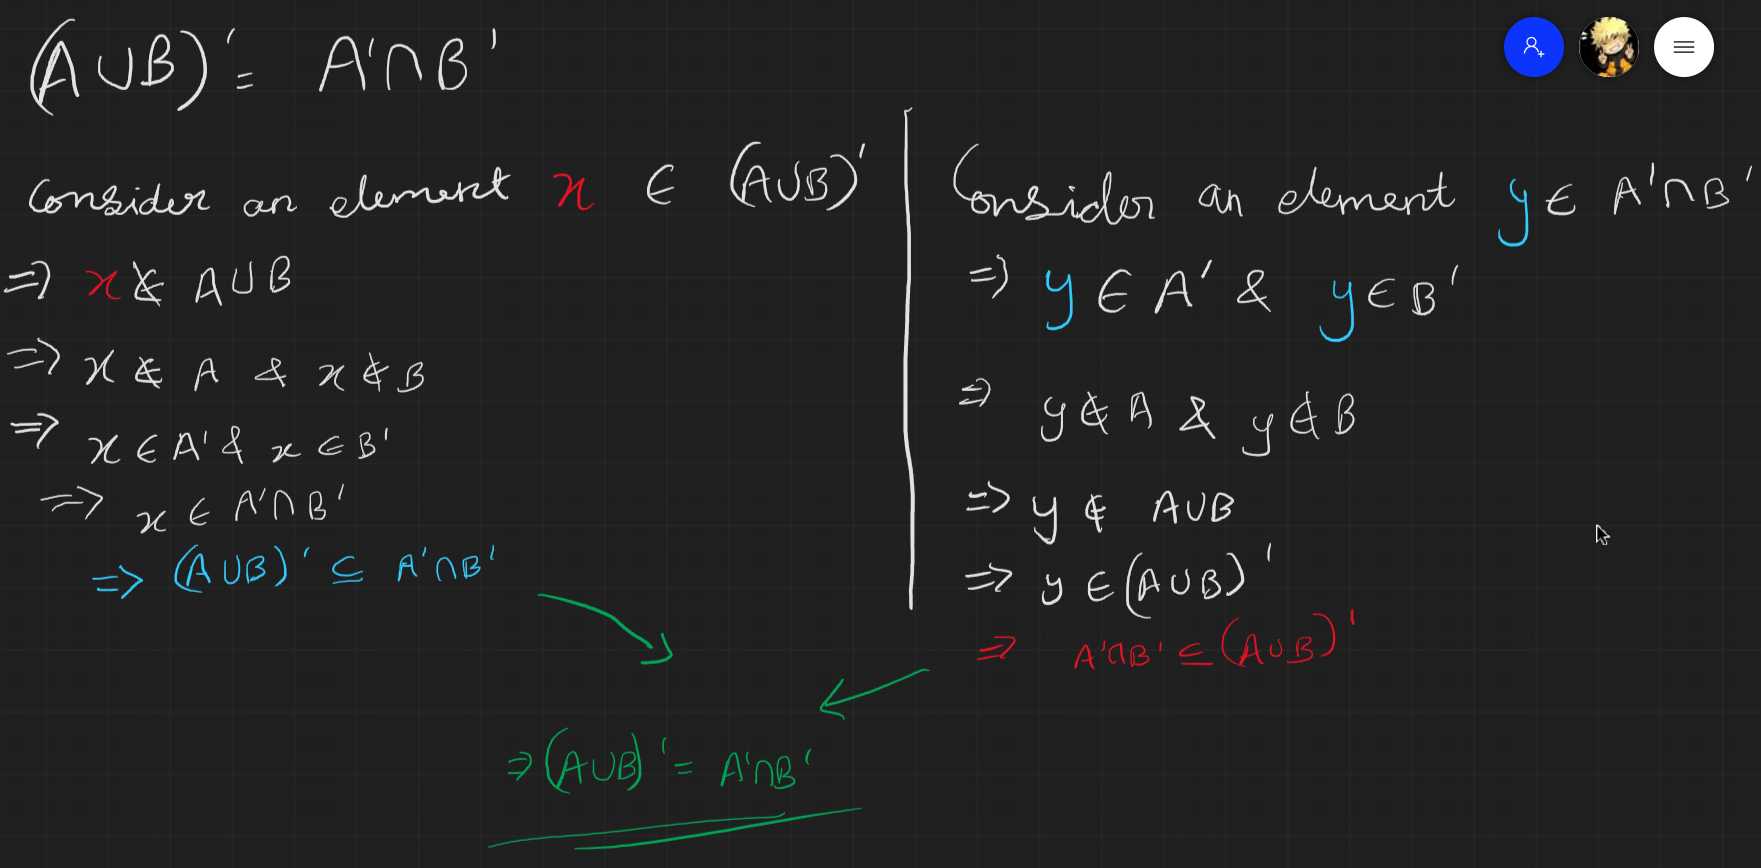 (A∪B)' = A'∩B'
Consider an element x ∈ (A∪B)'
⇒ x ∉ A∪B
⇒ x ∉ A & x ∉ B
⇒ x ∈ A' & x ∈ B'
⇒ x ∈ A'∩B'
⇒ (A∪B)' ⊆ A'∩B'
Consider an element y ∈ A'∩B'
⇒ y ∈ A' & y ∈ B'
⇒ y ∉ A & y ∉ B
⇒ y ∉ A∪B
⇒ y ∈ (A∪B)'
⇒ A'∩B' ⊆ (A∪B)'
⇒ (A∪B)' = A'∩B'